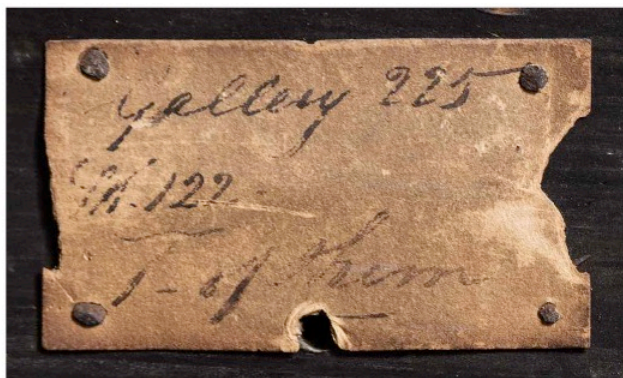 Gallery 225
GK.122
T- of them